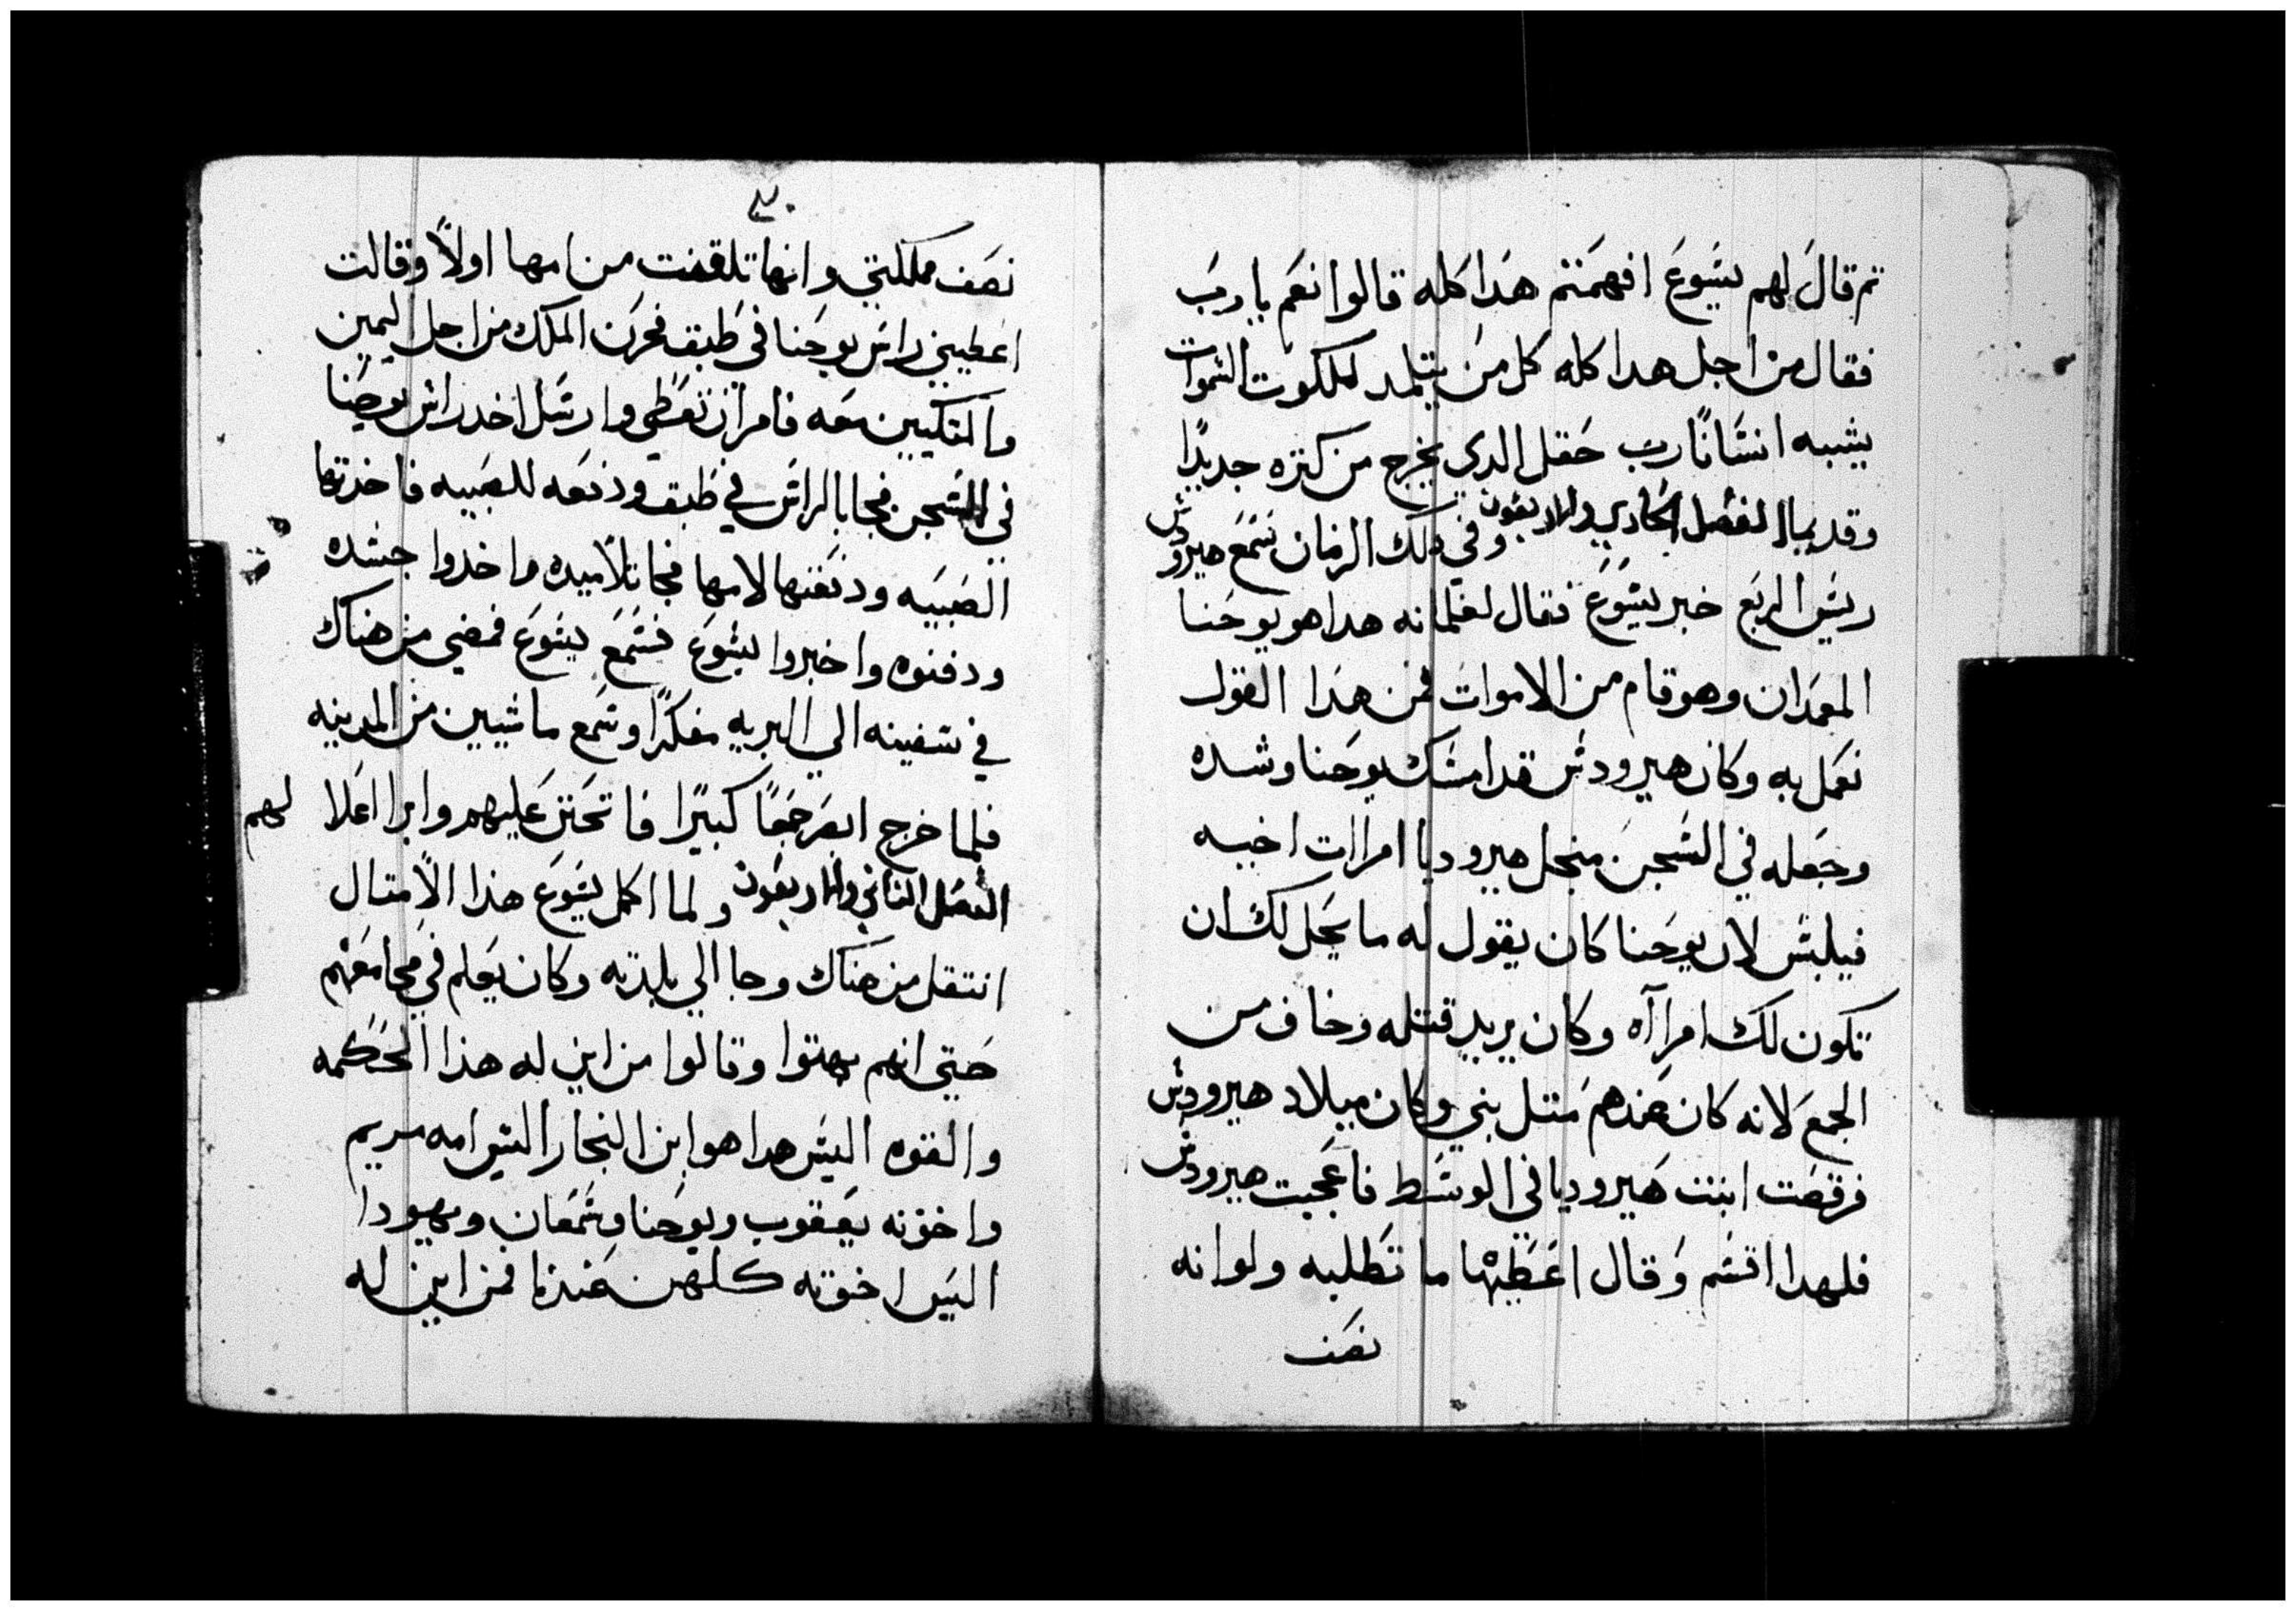 تم قال لهم يسوع افهمتم هدا كله قالوا نعم يا رب
فقال من اجل هدا كله كل من يتلمد لملكوت السموات
يشبه انسانًا رب حقل الدي يخرج من كنزه جديدًا
وقديما الفصل الحادي والاربعون وفي دلك الزمان سمع هيرودس
ريس الربع خبر يسوع فقال لغلمانه هدا هو يوحنا
المعمدان وهو قام من الاموات فمن هدا القول
نعمل به وكان هيرودس قد امسك يوحنا وشده
وجعله في السجن منجل هيروديا امراات اخيه
فيلبس لان يوحنا كان يقول له ما يحل لك ان
تكون لك امراآه وكان يريد قتله وخاف من
الجمع لانه كان عندهم متل بني وكان ميلاد هيرودس
فرقصت ابنت هيروديا في الوسط فاعجبت هيرودس
فلهدا اقسم وقال اعطيها ما تطلبه ولو انه
نصف
٣٠
نصف مملكتي وانها تلقفت من امها اولًا وقالت
اعطيني راس يوحنا في طبق فحزن الملك من اجل اليمين
والمتكيين معه فامر ان تعطي وارسل اخد راس يوحنا
في السجن فجا بالراس في طبق ودفعه للصبيه فاخدتها
الصبيه ودفعتها لامها فجا تلاميده واخدوا جسده
ودفنوه واخبروا يسوع فسمع يسوع فمضي من هناك
في سفينه الي البريه مفكرًا وسمع ماشيين من المدينه
فلما خرج ابصر جمعًا كبيرًا فاتحنن عليهم وابرا اعلا لهم
الفصل التاني والاربعون ولما اكمل يسوع هذا الامتال
انتقل من هناك وجا الي بلدته وكان يعلم في مجامعهم
حتي انهم بهتوا وقالوا من اين له هذا الحكمه
والقوه اليس هدا هو ابن النجار اليس امه مريم
واخوته يعقوب ويوحنا وشمعان ويهودا
اليس اخوته كلهن عندنا فمن اين له